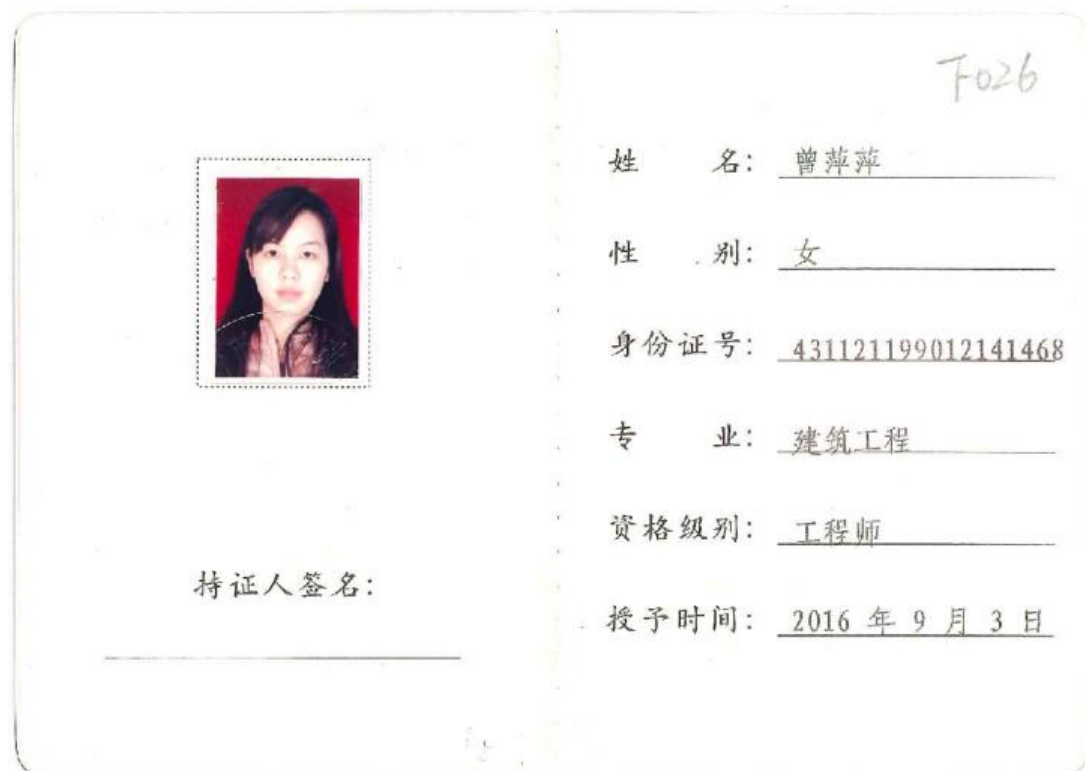 下026
姓名：曾萍萍
性别：女
身份证号：431121199012141468
专业：建筑工程
资格级别：工程师
授予时间：2016 年 9 月 3 日
持证人签名：